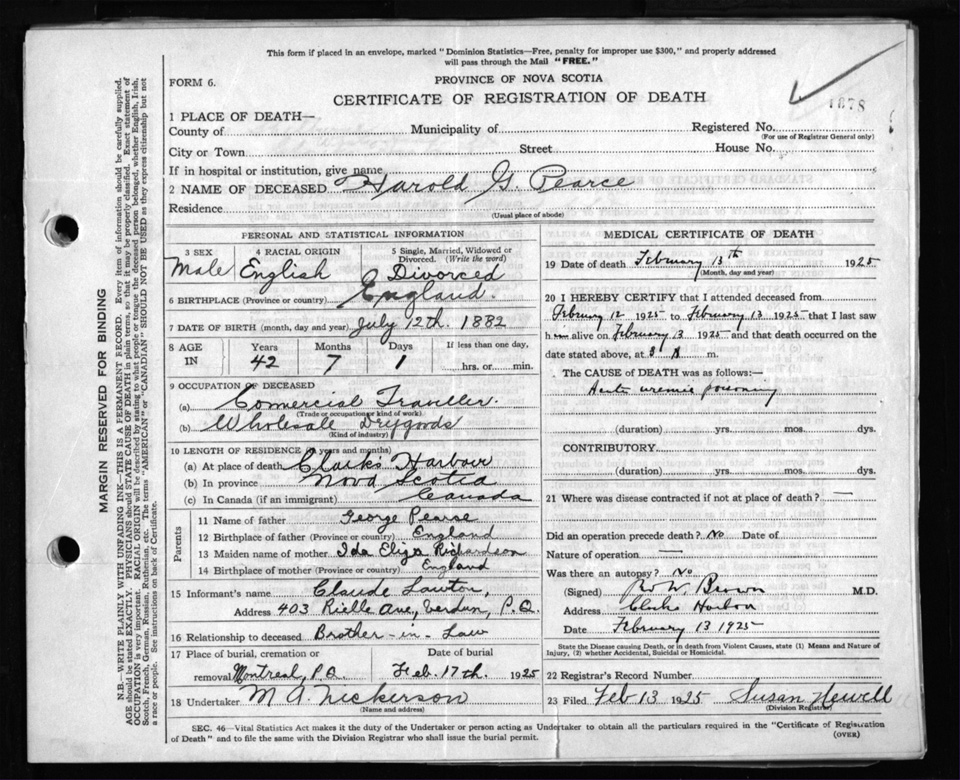 This form if placed in an envelope, marked "Dominion Statistics—Free, penalty for improper use $300," and properly addressed
will pass through the Mail "FREE."
FORM 6.
PROVINCE OF NOVA SCOTIA
CERTIFICATE OF REGISTRATION OF DEATH
1878
1 PLACE OF DEATH—
County of Municipality of Registered No.
(For use of Registrar General only)
City or Town Street House No.
If in hospital or institution, give name
2 NAME OF DECEASED Harold G. Pearce
Residence
(Usual place of abode)
PERSONAL AND STATISTICAL INFORMATION
3 SEX 4 RACIAL ORIGIN 5 Single, Married, Widowed or Divorced. (Write the word)
Male English Divorced
6 BIRTHPLACE (Province or country) England.
7 DATE OF BIRTH (month, day and year) July 12th. 1882
8 AGE IN Years Months Days If less than one day,
42 7 1 hrs. or min.
9 OCCUPATION OF DECEASED
(a) Comercial Traveller.
(Trade or occupation or kind of work)
(b) Wholesale Drygoods
(Kind of industry)
10 LENGTH OF RESIDENCE (in years and months)
(a) At place of death Clarks Harbour
(b) In province Nova Scotia
(c) In Canada (if an immigrant) Canada
Parents
11 Name of father George Pearse
12 Birthplace of father (Province or country) England
13 Maiden name of mother Ida Eliza Richardson
14 Birthplace of mother (Province or country) England
15 Informant's name Claude Lawton,
Address 403 Rielle Ave, Verdun, P.Q.
16 Relationship to deceased Brother-in-Law
17 Place of burial, cremation or removal Date of burial
Montreal, P.Q. Feb. 17th. 1925
18 Undertaker M A Nickerson
(Name and address)
MEDICAL CERTIFICATE OF DEATH
19 Date of death February 13th 1925
(Month, day and year)
20 I HEREBY CERTIFY that I attended deceased from
February 12 1925 to February 13 1925 that I last saw
h alive on February 13 1925 and that death occurred on the
date stated above, at 3 m.
The CAUSE OF DEATH was as follows:—
Acute uremic poisoning
(duration) yrs. mos. dys.
CONTRIBUTORY
(duration) yrs. mos. dys.
21 Where was disease contracted if not at place of death? —
Did an operation precede death? No Date of
Nature of operation —
Was there an autopsy? No
(Signed) Brown M.D.
Address Clarks Harbor
Date February 13 1925
State the Disease causing Death, or in death from Violent Causes, state (1) Means and Nature of
Injury, (2) whether Accidental, Suicidal or Homicidal.
22 Registrar's Record Number
23 Filed Feb 13 1925 Susan Newell
(Division Registrar)
SEC. 46—Vital Statistics Act makes it the duty of the Undertaker or person acting as Undertaker to obtain all the particulars required in the "Certificate of Registration
of Death" and to file the same with the Division Registrar who shall issue the burial permit.
(OVER)
MARGIN RESERVED FOR BINDING
N.B.—WRITE PLAINLY WITH UNFADING INK—THIS IS A PERMANENT RECORD. Every item of information should be carefully supplied.
AGE should be stated EXACTLY. PHYSICIANS should STATE CAUSE OF DEATH in plain terms, so that it may be properly classified. Exact statement of
OCCUPATION is very important. RACIAL ORIGIN will be described by stating to what people or tongue the deceased person belonged, whether English, Irish,
Scotch, French, German, Russian, Ruthenian, etc. The terms "AMERICAN" or "CANADIAN" SHOULD NOT BE USED as they express citizenship but not
a race or people. See instructions on back of Certificate.